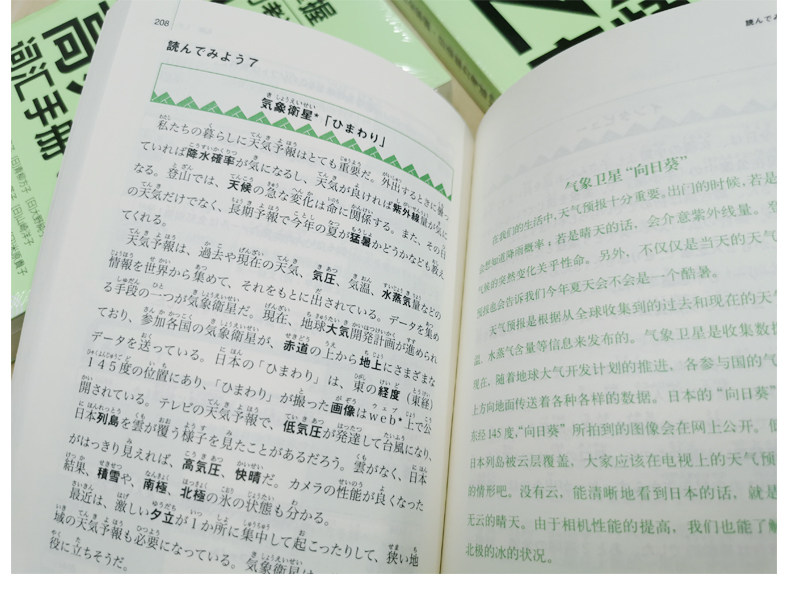 词汇手册
208
読んでみよう7
気象衛星*「ひまわり」
私たちの暮らしに天気予報はとても重要だ。外出するときに曇っ
ていれば降水確率が気になるし、天気が良ければ紫外線量が気に
なる。登山では、天候の急な変化は命に関係する。また、その日
の天気だけでなく、長期予報で今年の夏が猛暑かどうかなども教え
てくれる。
天気予報は、過去や現在の天気、気圧、気温、水蒸気量などの
情報を世界から集めて、それをもとに出されている。データを集め
る手段の一つが気象衛星だ。現在、地球大気開発計画が進められ
ており、参加各国の気象衛星が、赤道の上から地上にさまざまな
データを送っている。日本の「ひまわり」は、東の経度(東経)
145度の位置にあり、「ひまわり」が撮った画像はweb*上で公
開されている。テレビの天気予報で、低気圧が発達して台風になり、
日本列島を雲が覆う様子を見たことがあるだろう。雲がなく、日本
がはっきり見えれば、高気圧、快晴だ。カメラの性能が良くなった
結果、積雪や、南極、北極の氷の状態も分かる。
最近は、激しい夕立が1か所に集中して起こったりして、狭い地
域の天気予報も必要になっている。気象衛星は
役に立ちそうだ。
読んでみ
气象卫星“向日葵”
在我们的生活中，天气预报十分重要。出门的时候，若是
会想知道降雨概率；若是晴天的话，会介意紫外线量。登
气候的突然变化关乎性命。另外，不仅仅是当天的天气
预报也会告诉我们今年夏天会不会是一个酷暑。
天气预报是根据从全球收集到的过去和现在的天
温、水蒸气含量等信息来发布的。气象卫星是收集数
现在，随着地球大气开发计划的推进，各参与国的气
上方向地面传送着各种各样的数据。日本的“向日葵”
东经145度，“向日葵”所拍到的图像会在网上公开。低
日本列岛被云层覆盖，大家应该在电视上的天气预
的情形吧。没有云，能清晰地看到日本的话，就是
无云的晴天。由于相机性能的提高，我们也能了解
北极的冰的状况。